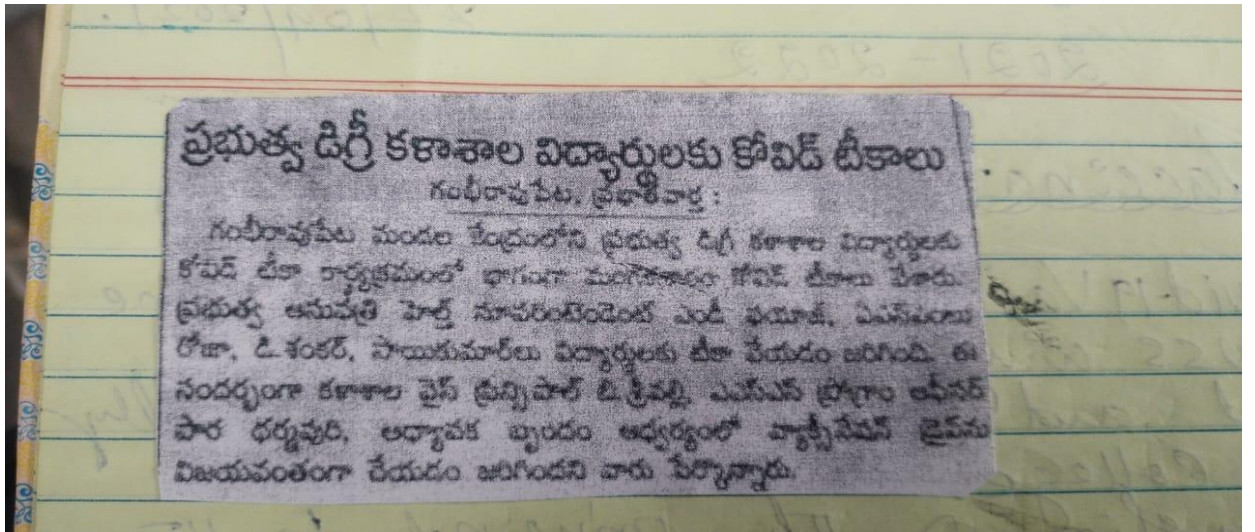 2021-2022
ప్రభుత్వ డిగ్రీ కళాశాల విద్యార్థులకు కోవిడ్ టీకాలు
గంభీరావుపేట, ప్రభాతవార్త :
గంభీరావుపేట మండల కేంద్రంలోని ప్రభుత్వ డిగ్రీ కళాశాల విద్యార్థులకు
కోవిడ్ టీకా కార్యక్రమంలో భాగంగా మంగళవారం కోవిడ్ టీకాలు వేశారు.
ప్రభుత్వ ఆసుపత్రి హెల్త్ సూపరింటెండెంట్ ఎండీ ఫయాజ్, ఏఎన్ఎంలు
రోజా, డి.శంకర్, సాయికుమార్‌లు విద్యార్థులకు టీకా వేయడం జరిగింది. ఈ
సందర్భంగా కళాశాల వైస్ ప్రిన్సిపాల్ బి.శ్రీవల్లి, ఎన్ఎస్ఎస్ ప్రోగ్రాం ఆఫీసర్
పార ధర్మపురి, అధ్యాపక బృందం ఆధ్వర్యంలో వ్యాక్సినేషన్ డ్రైవ్‌ను
విజయవంతంగా చేయడం జరిగిందని వారు పేర్కొన్నారు.